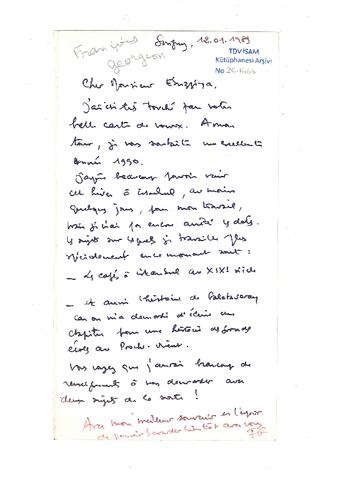 François
Georgeon
12.01.1989
TDV İSAM
Kütüphanesi Arşivi
No 2E-1466
Cher Monsieur Eruzziya,
J'ai été très touché par votre
belle carte de voeux. A mon
tour, je vous souhaite une excellente
année 1990.
J'espère beaucoup pouvoir venir
cet hiver à Istanbul, au moins
quelques jours, pour mon travail,
mais je n'ai pas encore arrêté les dates.
Les sujets sur lesquels je travaille plus
spécialement en ce moment sont :
— Les cafés à Istanbul au XIXe siècle
— et aussi l'histoire de Galatasaray
car on m'a demandé d'écrire un
chapitre pour une histoire des grandes
écoles au Proche-Orient.
Vous voyez que j'aurais beaucoup de
renseignements à vous demander sur
deux sujets de ce sorte !
Avec mon meilleur souvenir et l'espoir
de pouvoir bavarder bientôt avec vous